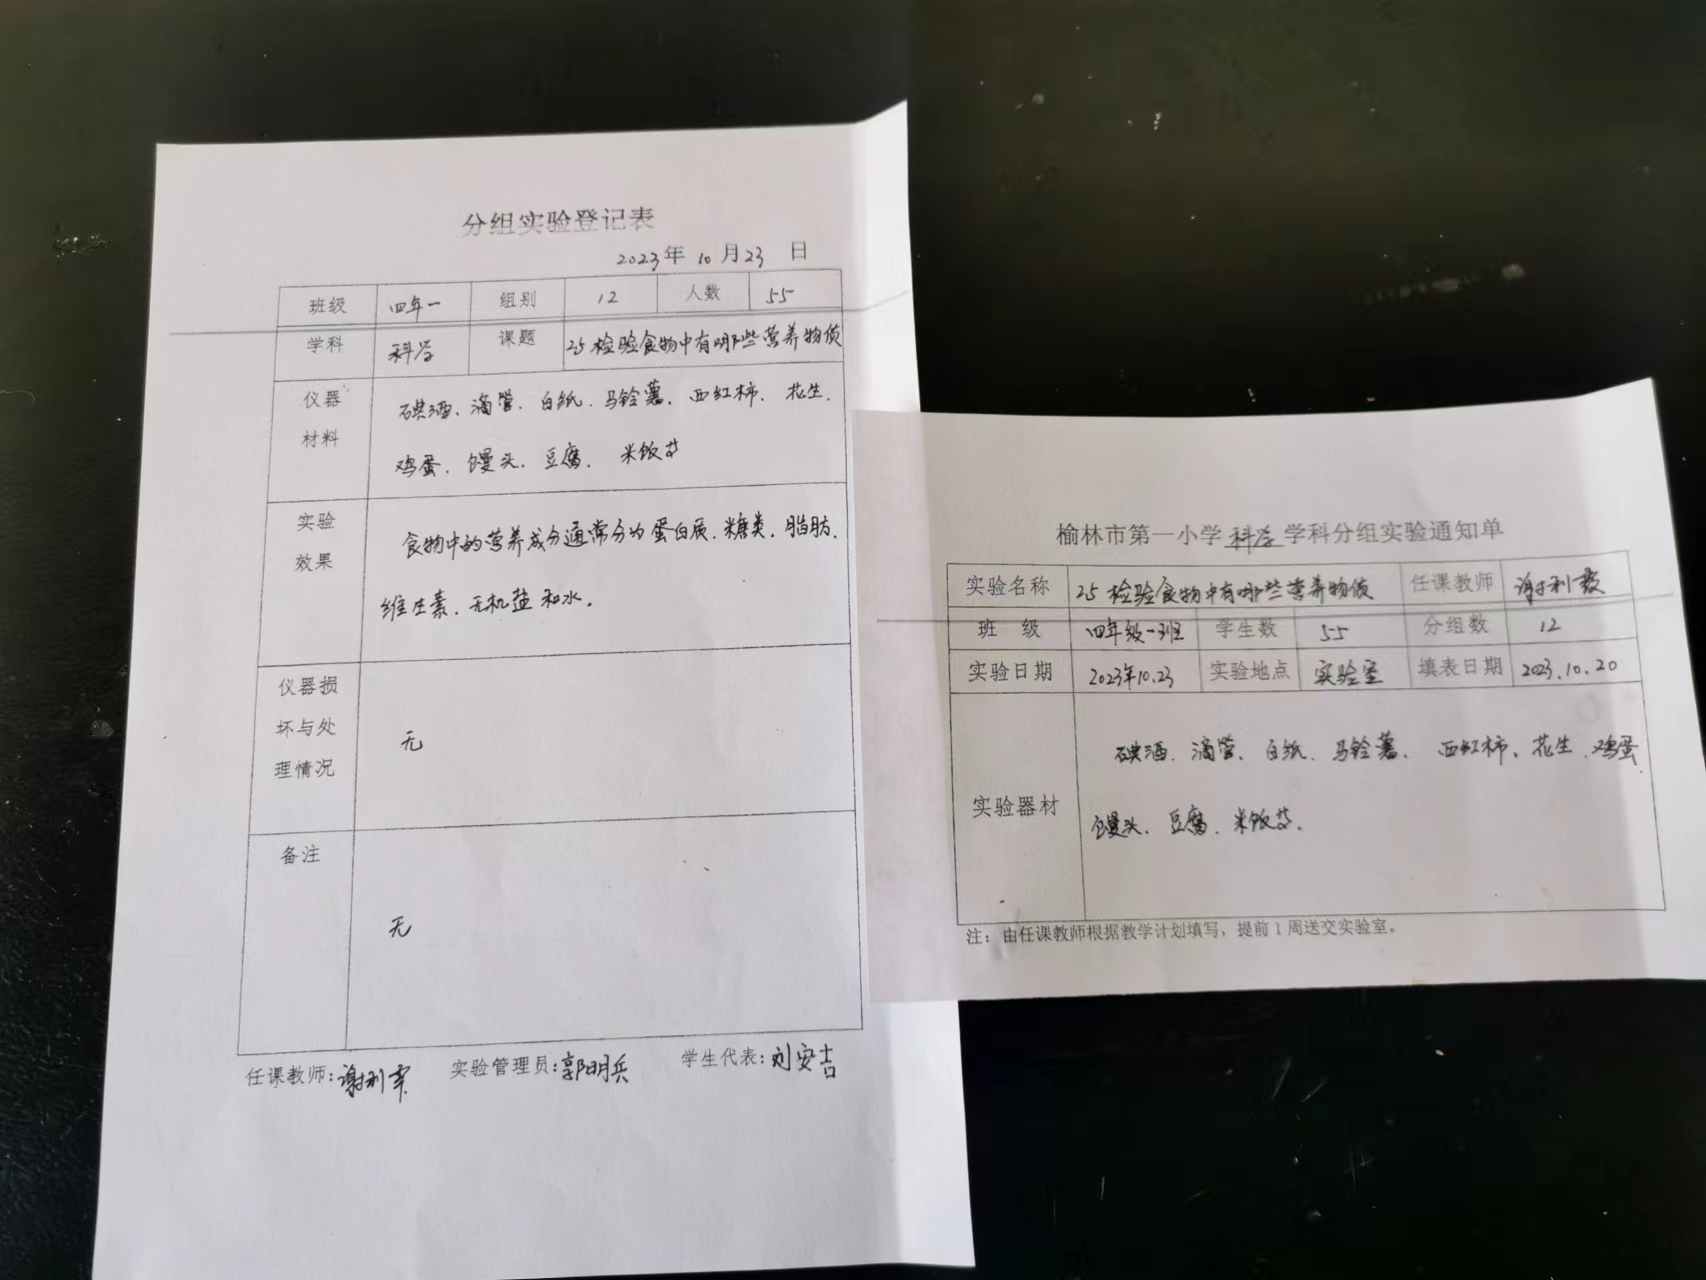 分组实验登记表
2023年 10月23 日
班级 四年一 组别 12 人数 55
学科 科学 课题 25检验食物中有哪些营养物质
仪器材料 碘酒、滴管、白纸、马铃薯、西红柿、花生、
鸡蛋、馒头、豆腐、米饭等
实验效果 食物中的营养成分通常分为蛋白质、糖类、脂肪、
维生素、无机盐和水。
仪器损坏与处理情况 无
备注 无
任课教师:谢利 实验管理员:郭明兵 学生代表:刘安吉
榆林市第一小学科学学科分组实验通知单
实验名称 25检验食物中有哪些营养物质 任课教师 谢利霞
班 级 四年级一班 学生数 55 分组数 12
实验日期 2023年10.23 实验地点 实验室 填表日期 2023.10.20
实验器材 碘酒、滴管、白纸、马铃薯、西红柿、花生、鸡蛋
馒头、豆腐、米饭等。
注：由任课教师根据教学计划填写，提前1周送交实验室。